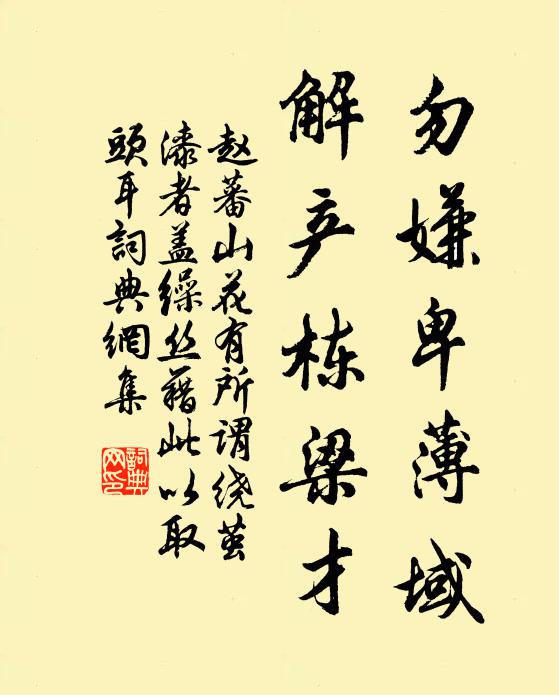 勿嫌卑薄域
解产栋梁才
赵蕃山花有所谓绕茧
漆者盖缲丝藉此以取
頭耳詞典網集
詞典
网印